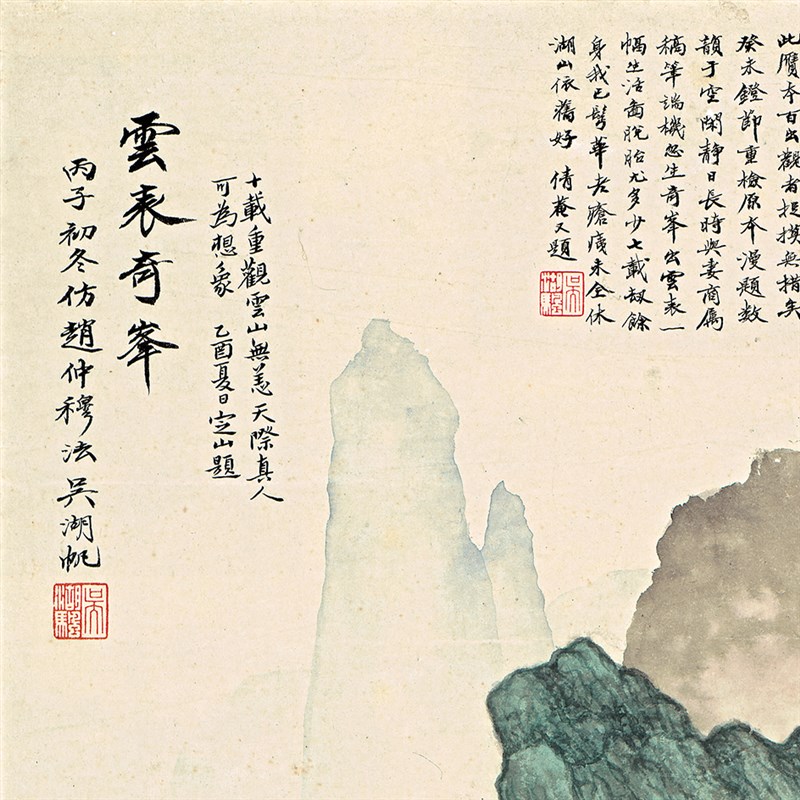 此贋本百出觀者捉摸無措矣
癸未鐙節重檢原本漫題數
韻于空閑静日長時與妻商屬
稿筆端機忽生奇峯出雲表一
幅生活齒脫胎尤多少七載劫餘
身我已鬢華老瘡痍未全休
湖山依舊好 倩菴又題
十載重觀雲山無恙天際真人
可為想象 乙酉夏日定山題
雲表奇峯
丙子初冬仿趙仲穆法吳湖帆